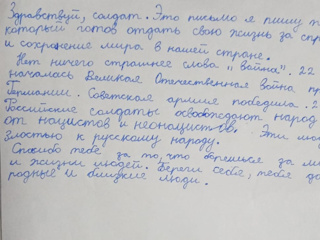 Здравствуй, солдат. Это письмо я пишу т
который готов отдать свою жизнь за спр
и сохранение мира в нашей стране.
Нет ничего страшнее слова "война". 22
началась Великая Отечественная война пр
Германии. Советская армия победила. 2
Российские солдаты освобождают народ
от нацистов и неонацистов. Эти
злостью к русскому народу.
Спасибо тебе за то, что борешься за ми
и жизни людей. Береги себя, тебя до
родные и близкие люди.